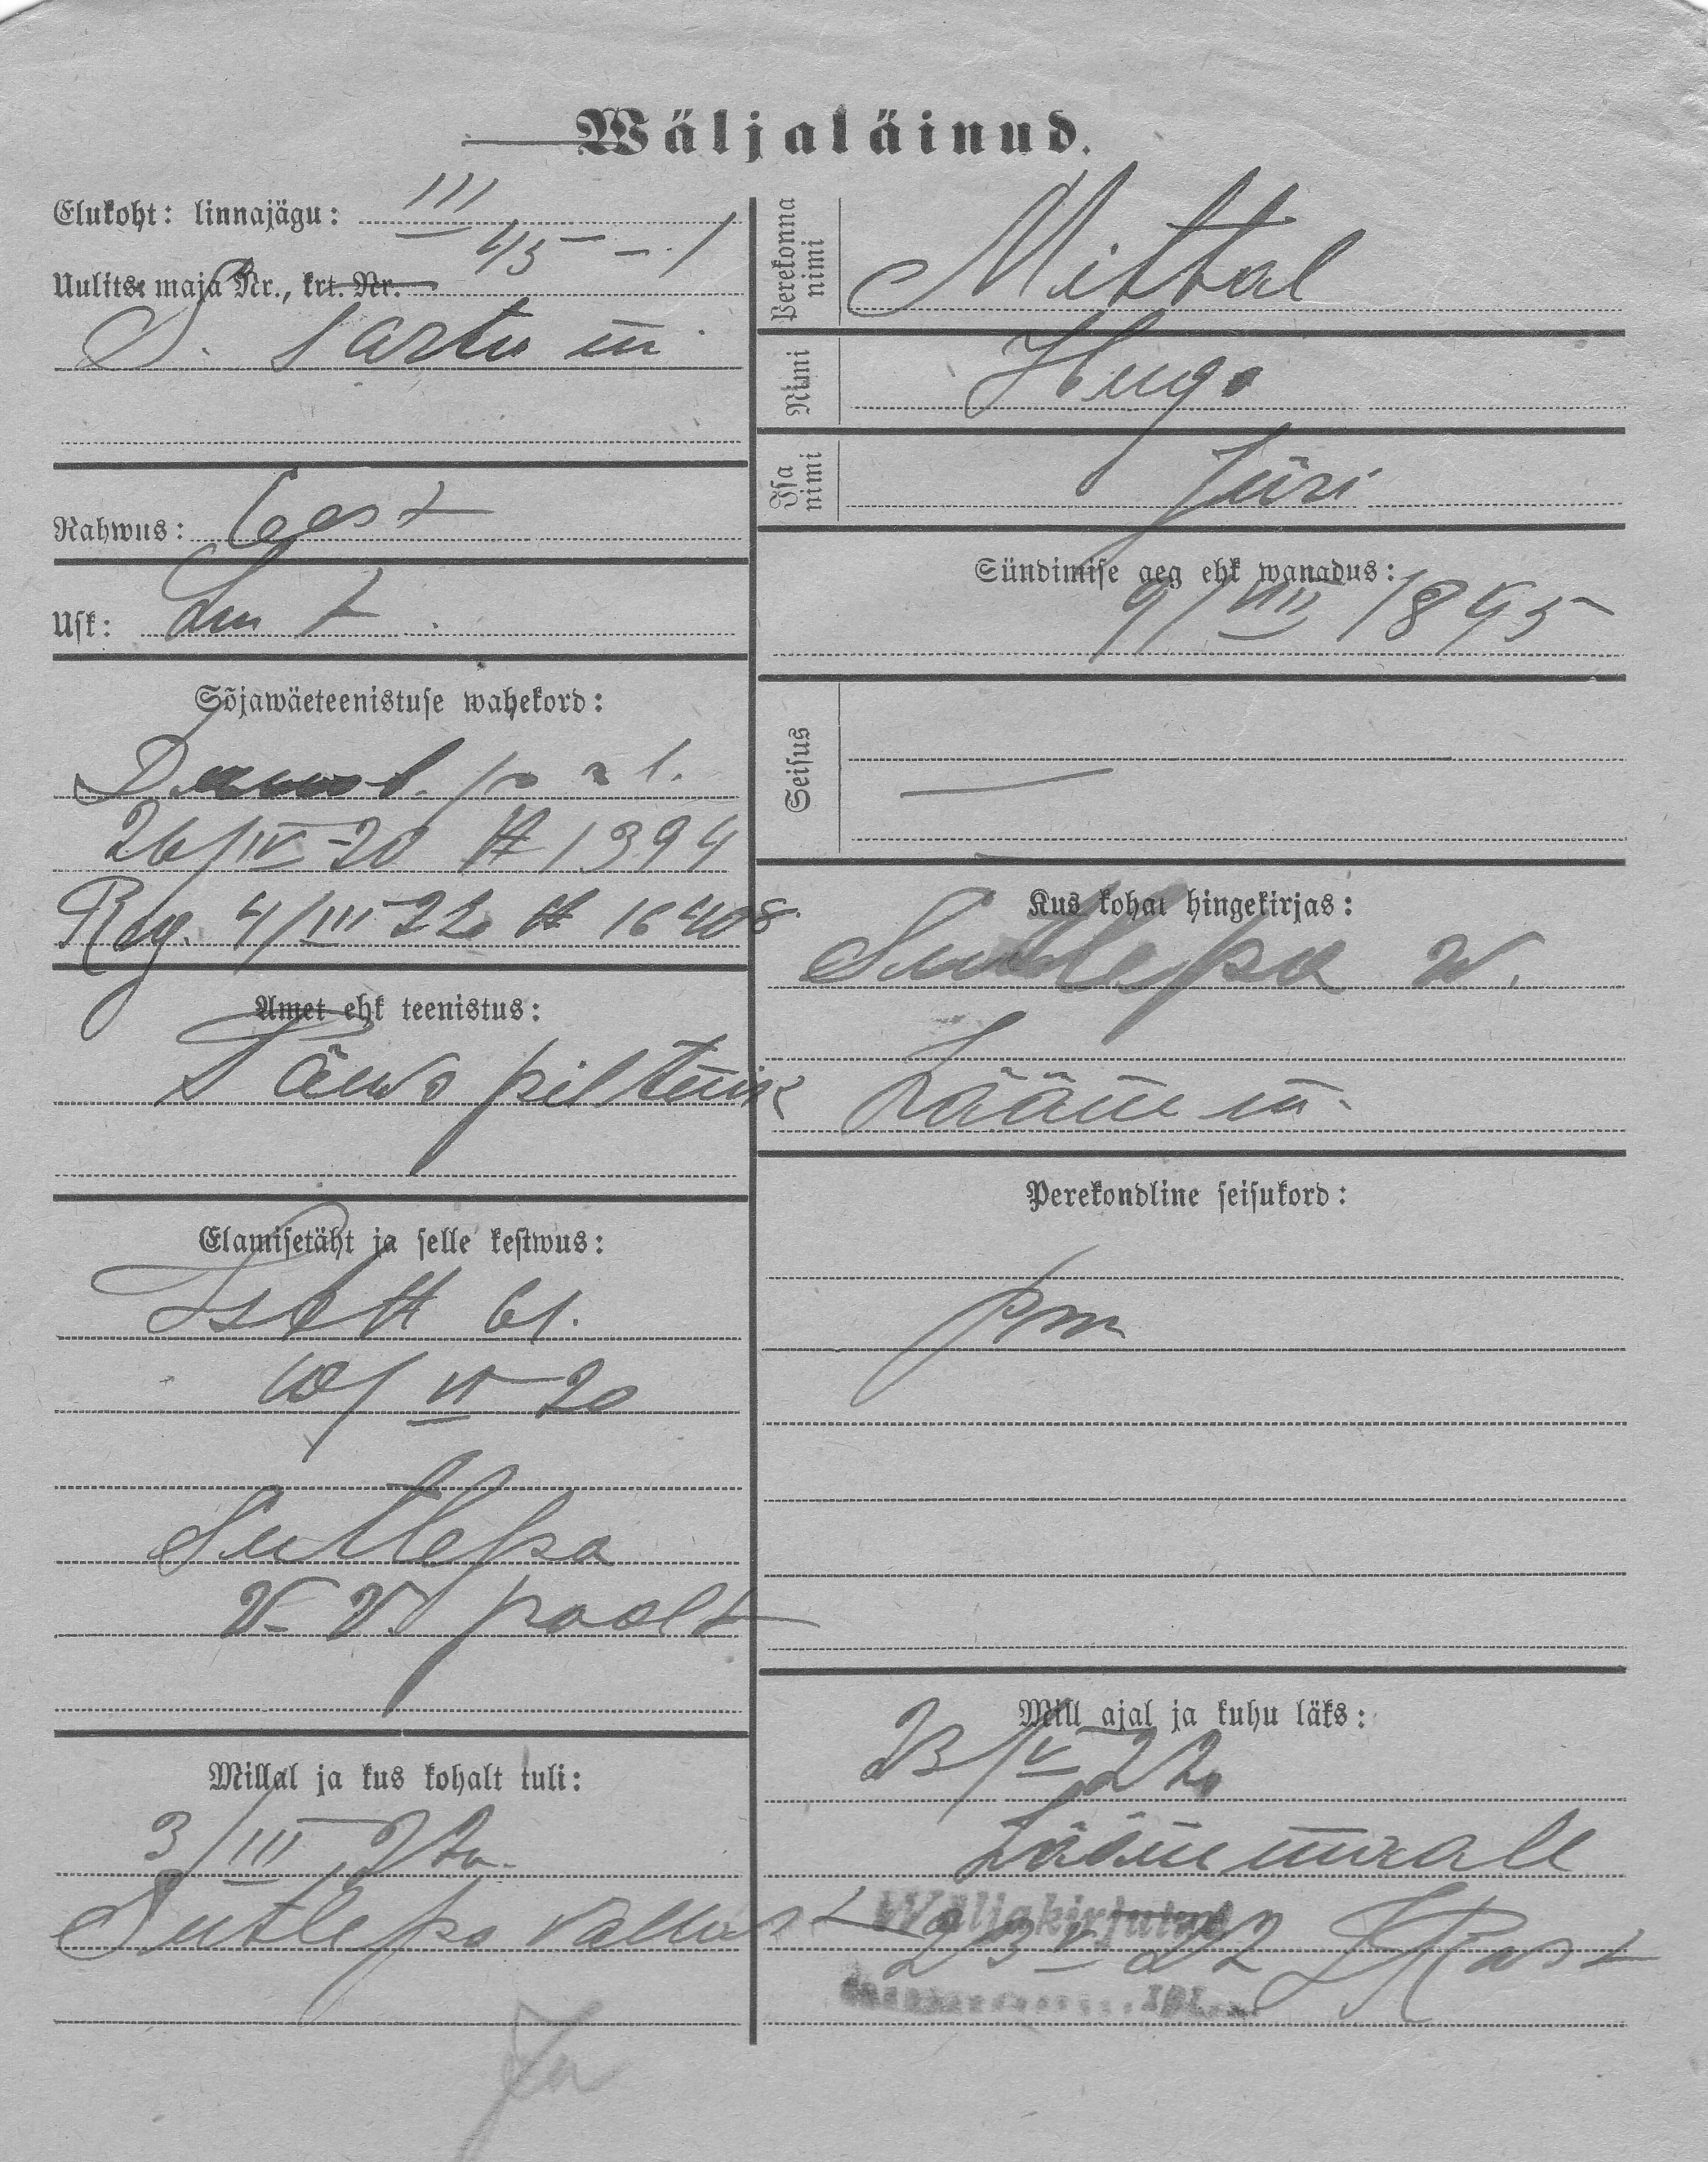 Wäljaläinud.
Elukoht: linnajägu: III
Uulits: maja Nr., krt. Nr. 45 – 1
S. Tartu m
Rahwus: Eest
Usk: Lut
Sõjawäeteenistuse wahekord:
Demob.
26/IV-20 № 1394
Reg. 4/III 22 № 16408
Amet ehk teenistus:
Päewapiltnik
Elamisetäht ja selle kestwus:
Iset № 61.
10/VI 20
Sutlepa
V. V. poolt
Millal ja kus kohalt tuli:
3/III 22
Sutlepa vallast
Perekonna nimi Mittal
Nimi Hugo
Isa nimi Jüri
Sündimise aeg ehk wanadus:
9/VIII 1895
Seisus —
Kus kohat hingekirjas:
Sutlepa w.
Lääne m.
Perekondline seisukord:
Mill ajal ja kuhu läks:
23/V 22
Läänemaale
Wäljakirjutud
23 V 22